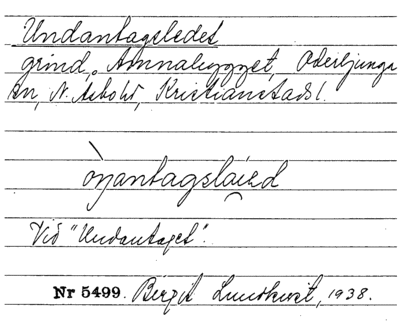 Undantagsledet
grind, Annahygget, Oderljunga
sn, N. Åsbo hd, Kristianstads l.
òŋantagslaiəd
Vid "Undantaget".
Nr 5499. Birgit Lundkvist, 1938.